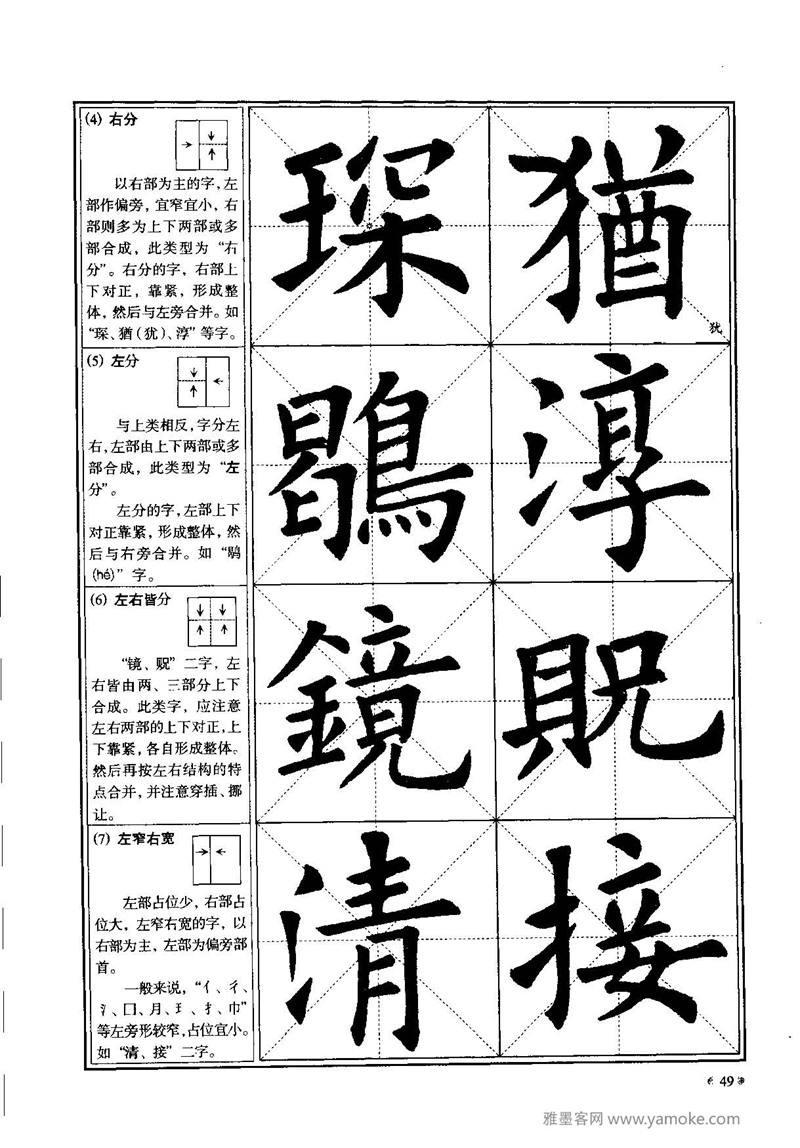 (4) 右分
以右部为主的字,左
部作偏旁,宜窄宜小,右
部则多为上下两部或多
部合成,此类型为“右
分”。右分的字,右部上
下对正,靠紧,形成整
体,然后与左旁合并。如
“琛、猶(犹)、淳”等字。
琛 猶
犹
(5) 左分
与上类相反,字分左
右,左部由上下两部或多
部合成,此类型为“左
分”。
左分的字,左部上下
对正靠紧,形成整体,然
后与右旁合并。如“鹖
(hé)”字。
鶡 淳
(6) 左右皆分
“镜、贶”二字,左
右皆由两、三部分上下
合成。此类字,应注意
左右两部的上下对正,上
下靠紧,各自形成整体。
然后再按左右结构的特
点合并,并注意穿插、挪
让。
鏡 貺
(7) 左窄右宽
左部占位少,右部占
位大,左窄右宽的字,以
右部为主,左部为偏旁部
首。
一般来说,“亻、彳、
氵、囗、月、王、扌、巾”
等左旁形较窄,占位宜小。
如“清、接”二字。
清 接
49
雅墨客网 www.yamoke.com